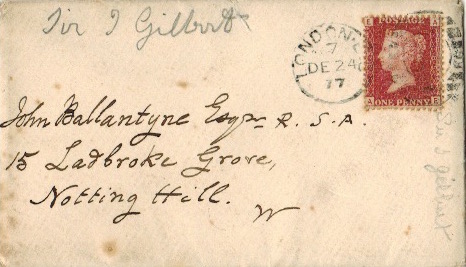 Sir J Gilbert
LONDON
7
DE 24
77
POSTAGE
ONE PENNY
John Ballantyne Esqr R.S.A.
15 Ladbroke Grove,
Notting Hill.
W
Sir J Gilbert